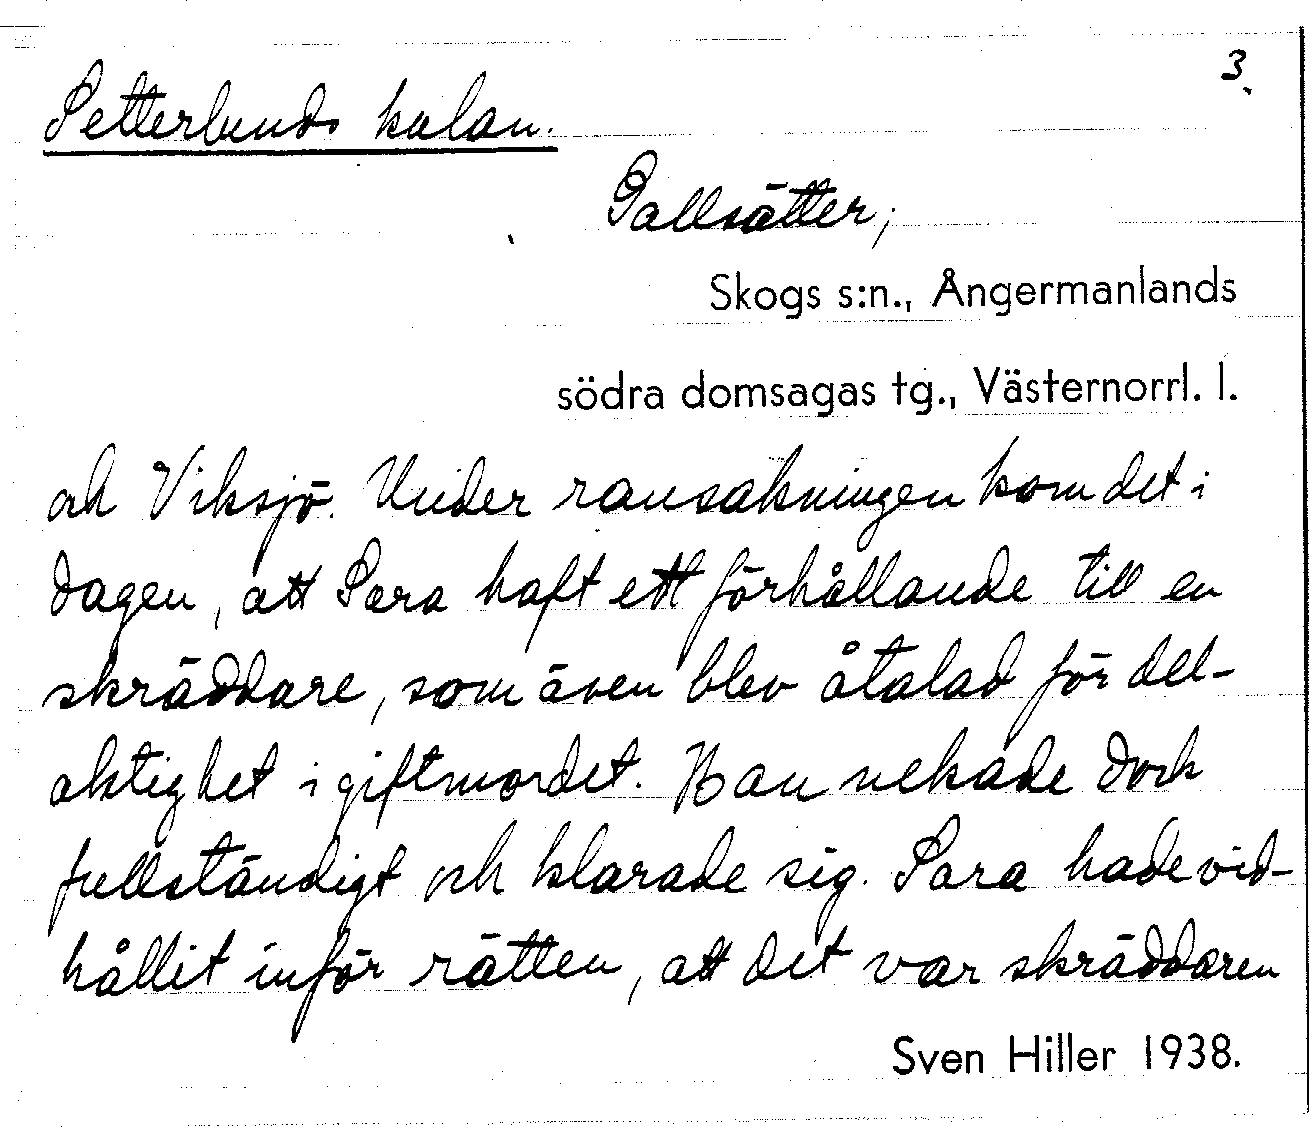 3.
Setterlunds kulan.
Gallsätter,
Skogs s:n., Ångermanlands
södra domsagas tg., Västernorrl. l.
och Viksjö. Under ransakningen kom det i
dagen, att Sara haft ett förhållande till en
skräddare, som även blev åtalad för del-
aktighet i giftmordet. Han nekade dock
fullständigt och klarade sig. Sara hade vid-
hållit inför rätten, att det var skräddaren
Sven Hiller 1938.